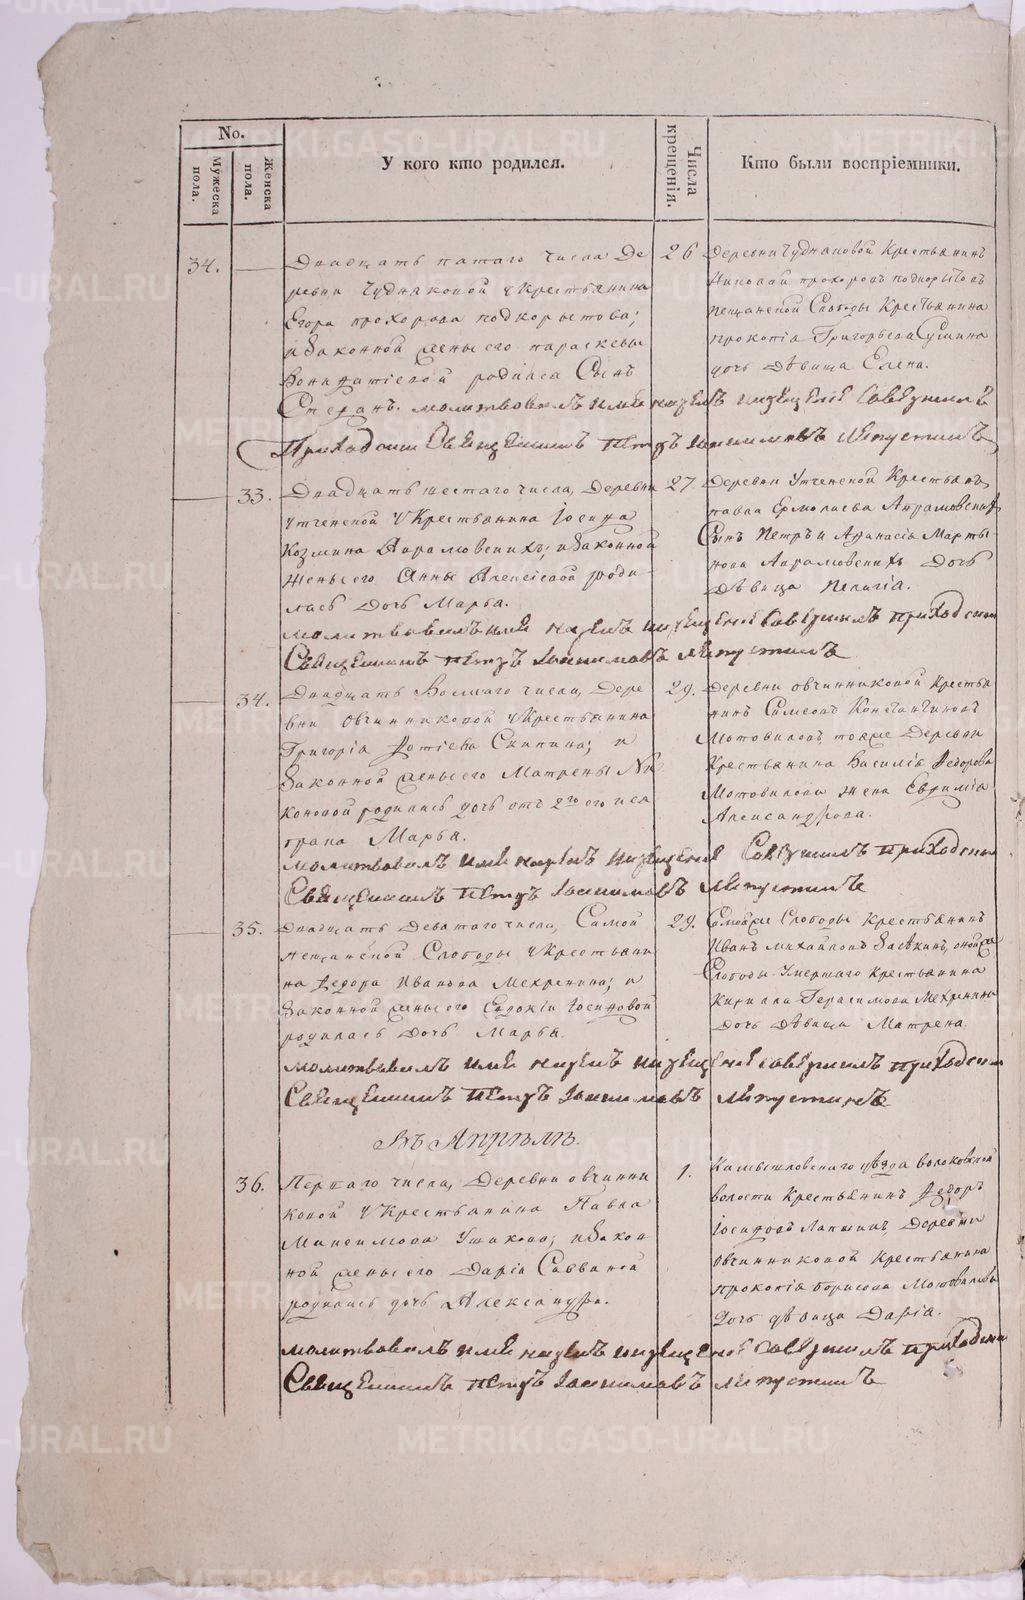 No.
Мужеска пола.
Женска пола.
У кого кто родился.
Числа крещенія.
Кто были воспріемники.
34.
Двадцать пятаго числа Де
ревни Чудиновой у Крестьянина
Егора Прохорова Подкорытова;
и Законной жены его Параскевы
родился Сынъ
Стефанъ. молитвовалъ имя нарекъ и крещеніе совершилъ
Приходскій Священникъ Петръ Іоакимовъ
26
Деревни Чудиновой Крестьянинъ
Николай Прохоровъ Подкорытовъ
Песчанской Слободы Крестьянина
Прокопія Григорьева
дочь Дѣвица Елена.
33.
Двадцать шестаго числа, Деревни
у Крестьянина Іосифа
Козмина и Законной
жены его Анны Алексіевой роди-
лась Дочь Марѳа.
молитвовалъ имя нарекъ и крещеніе совершилъ приходскій
Священникъ Петръ Іоакимовъ
27
Деревни Крестьянинъ
Павла Ермолаева
Сынъ Петръ и Аѳанасія Марты-
нова Дочь
Дѣвица Пелагія.
34.
Двадцать Восмаго числа, Дере
вни Овчинниковой у Крестьянина
Григорія Фотіева Скипина; и
Законной жены его Матрены Ни
коновой родилась дочь отъ 2го его
брака Марѳа.
молитвовалъ имя нарекъ и крещеніе Совершилъ приходскій
Священникъ Петръ Іоакимовъ
29.
Деревни Овчинниковой Крестья
нинъ Симеонъ Константиновъ
Мотовиловъ, тояже Деревни
Крестьянина Василія Федорова
Мотовилова жена Евфимія
Александрова.
35.
Двадцать Девятаго числа, Самой
Песчанской Слободы у Крестьяни
на Федора Иванова Мехренина; и
Законной жены его Евдокіи Іосифовой
родилась Дочь Марѳа.
молитвовалъ имя нарекъ и крещеніе совершилъ приходскій
Священникъ Петръ Іоакимовъ
29.
Самойже Слободы Крестьянинъ
Иванъ Михайловъ Засѣкинъ, онойже
Слободы Умершаго Крестьянина
Кирилла Герасимова Мехренина
Дочь Дѣвица Матрена.
Въ Апрѣлѣ.
36.
Перваго числа, Деревни Овчинни
ковой у Крестьянина Павла
Максимова Ушакова; и Закон
ной жены его Даріи Саввиной
родилась дочь Александра.
молитвовалъ имя нарекъ и крещеніе совершилъ приходскій
Священникъ Петръ Іоакимовъ
1.
Камышловскаго уѣзда
волости Крестьянинъ Федоръ
Іосифовъ Лапшинъ, Деревни
Овчинниковой Крестьянина
Прокопія Борисова Мотовилова
Дочь дѣвица Дарія.
METRIKI.GASO-URAL.RU